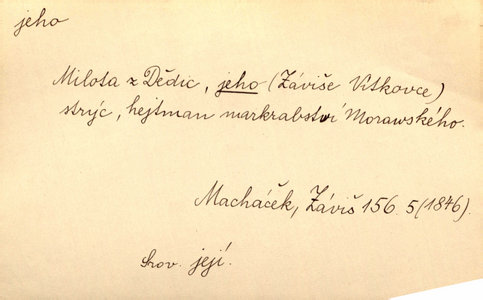 jeho
Milota z Dědic, jeho (Záviše Vítkovce)
strýc, hejtman markrabství Morawského.
Macháček, Záviš 156. 5 (1846).
Srov. její.